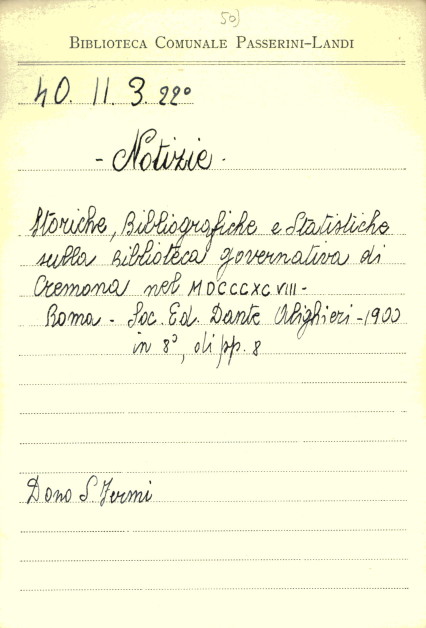 50)
BIBLIOTECA COMUNALE PASSERINI-LANDI
40. 11. 3. 22º
- Notizie -
Storiche, Bibliografiche e Statistiche
sulla Biblioteca governativa di
Cremona nel MDCCCXCVIII -
Roma - Soc. Ed. Dante Alighieri - 1900
in 8º, di pp. 8
Dono S Fermi